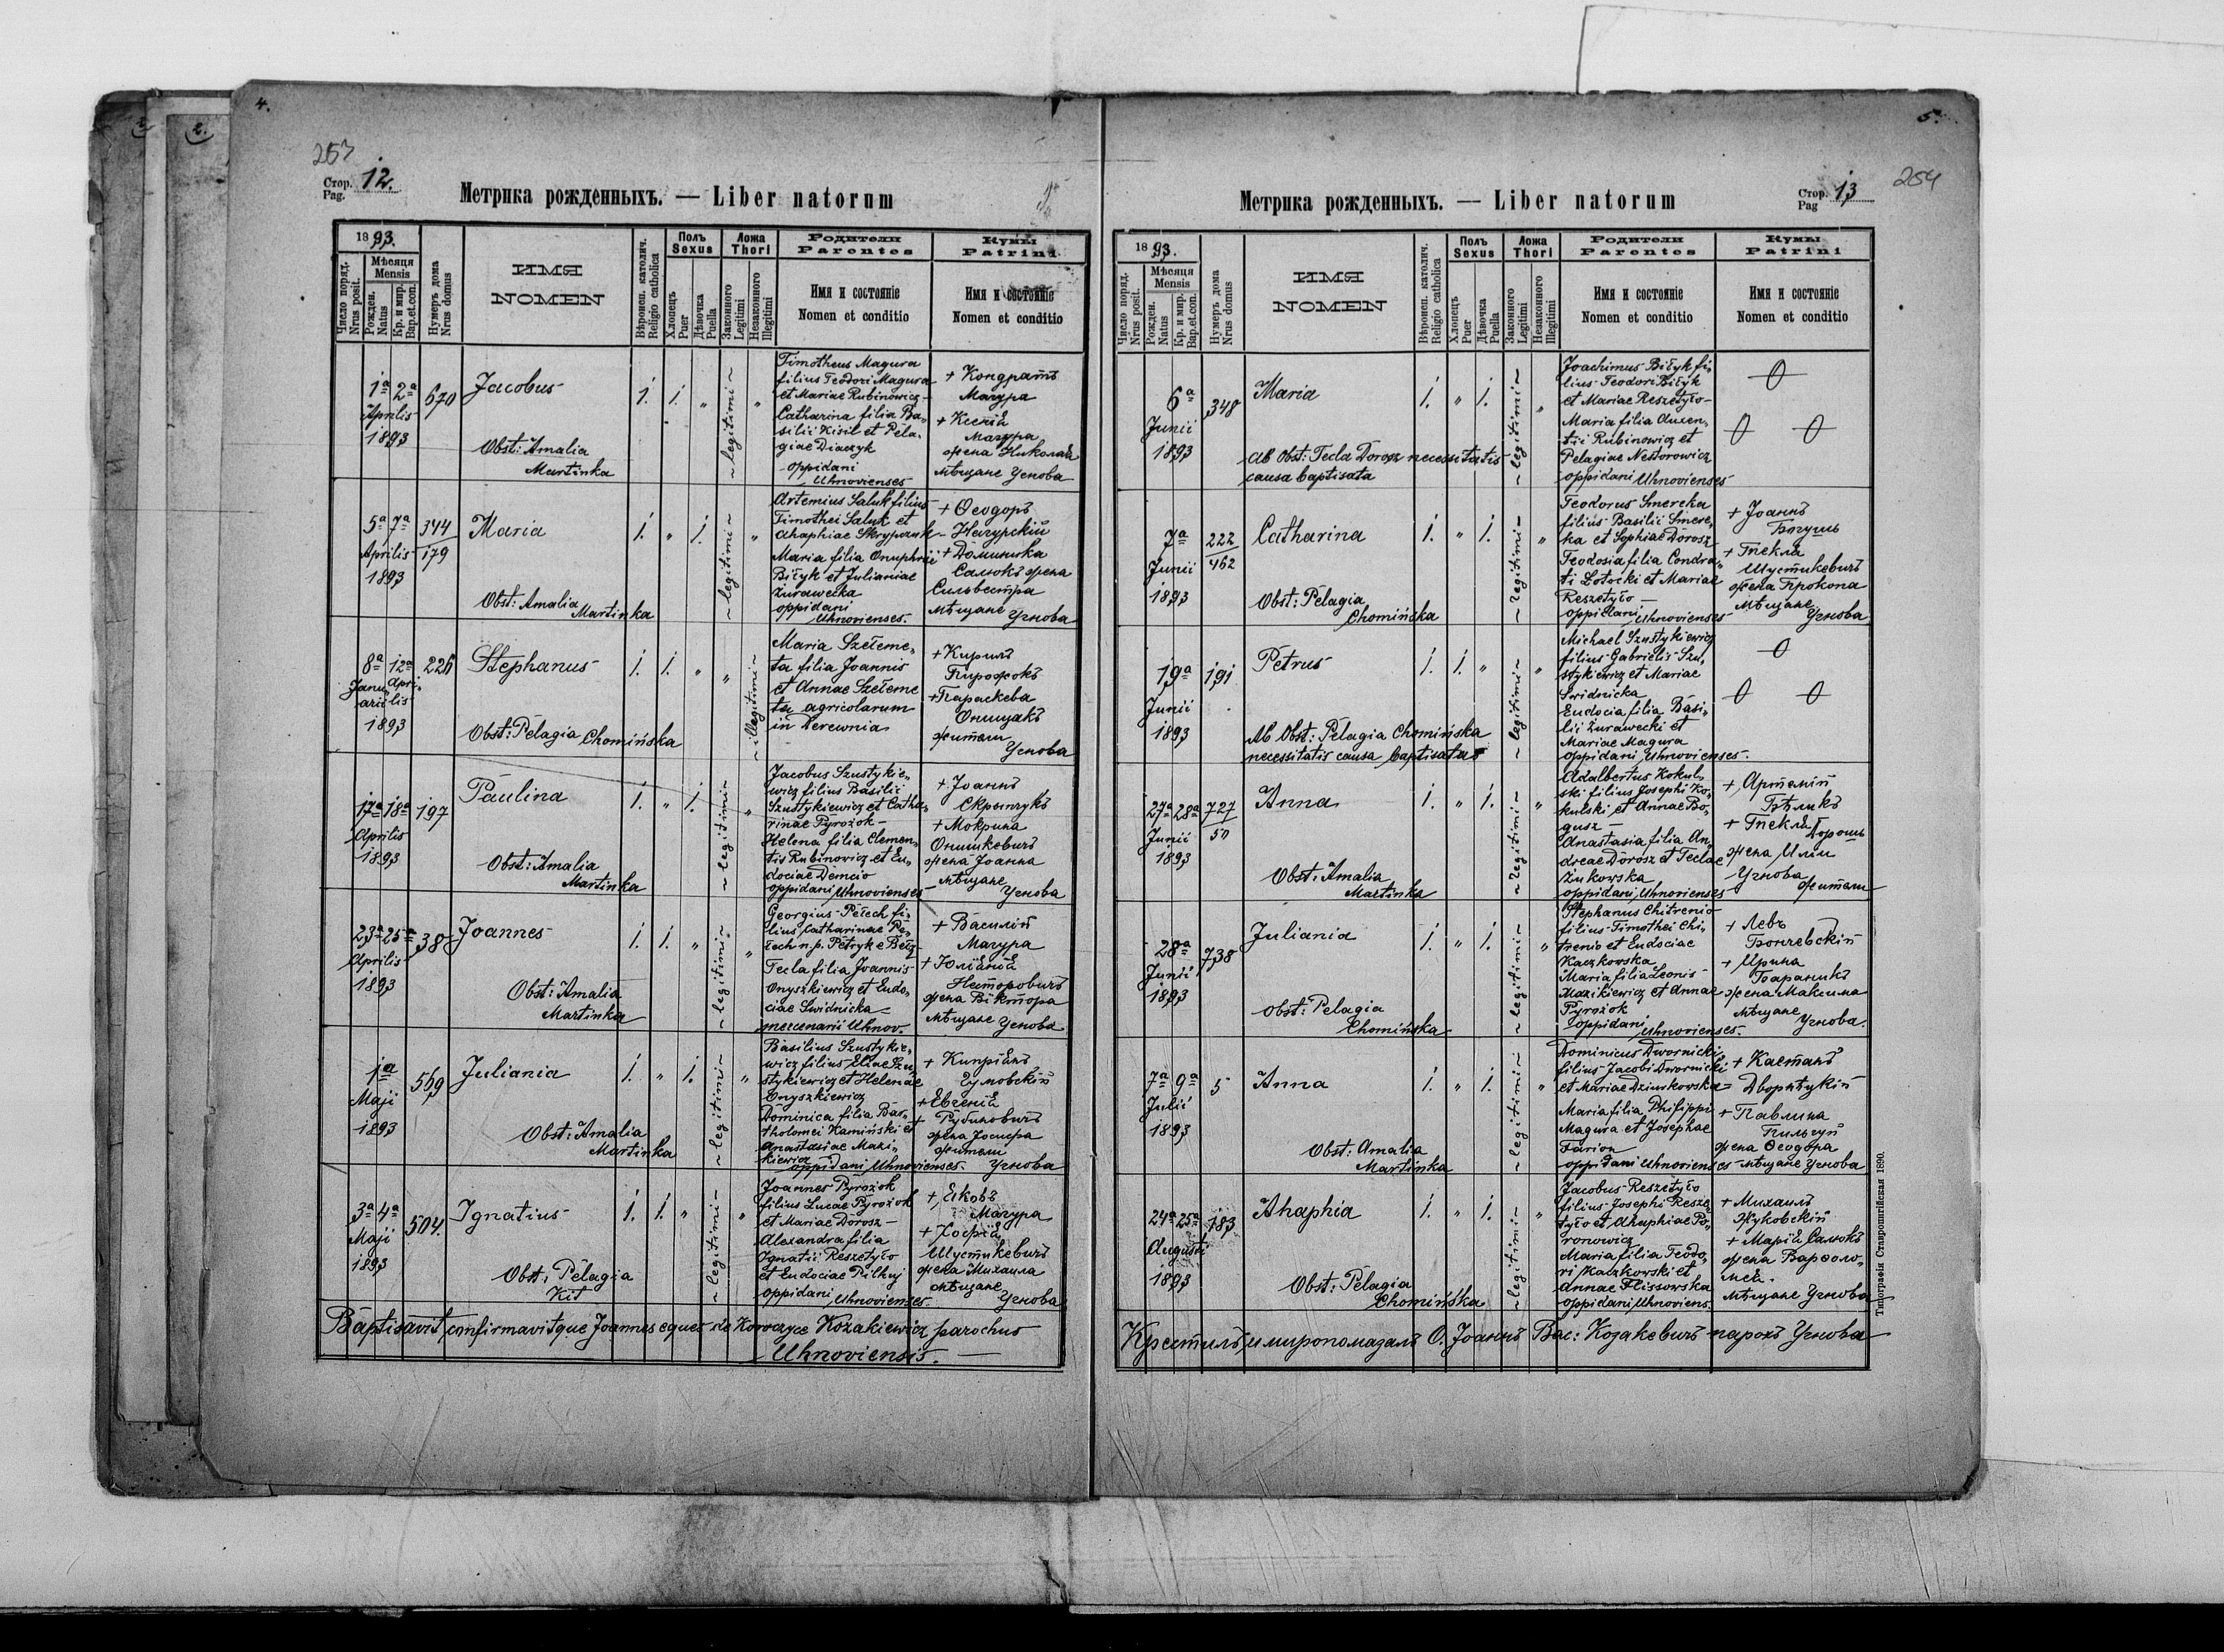 4.
2.
257
Стор. 12.
Pag.
Метрика рожденныхъ. — Liber natorum
1893.
Число поряд.
Nrus posit.
Мѣсяця
Mensis
Рожден.
Natus
Кр. и мир.
Bap.et.con.
Нумеръ дома
Nrus domus
ИМЯ
NOMEN
Вѣроисп. католич.
Religio catholica
Полъ
Sexus
Хлопецъ
Puer
Дѣвочка
Puella
Ложа
Thori
Законного
Legitimi
Незаконного
Illegitimi
Родители
Parentes
Имя и состояніе
Nomen et conditio
Кумы
Patrini
Имя и состояніе
Nomen et conditio
1ª 2ª
Aprilis
1893
670
Jacobus
Obst: Amalia
Martinka
1. 1. „
~ legitimi ~
„
Timotheus Magura
filius Teodori Magura
et Mariae Rubinowicz –
Catharina filia Ba„
silii Kisil et Pela„
giae Diaczyk
oppidani
Uhnovienses
+ Кондратъ
Магура
+ Ксенія
Магура
жена Николая
мѣщане Угнова
5ª 7ª
Aprilis
1893
344
179
Maria
Obst: Amalia
Martinka
1. „ 1.
~ legitimi ~
„
Artemius Saluk filius
Timothei Saluk et
Ahaphiae Skrypczuk –
Maria filia Onuphrii
Biłyk et Julianiae
Żurawecka
oppidani
Uhnovienses.
+ Ѳеодоръ
Нагурскій
+ Доминика
Салюкъ жена
Сильвестра
мѣщане Угнова
8ª 12ª
Janu„ Apri„
arii lis
1893
226
Stephanus
Obst: Pelagia Chomińska
1. 1. „
„
~ illegitimi ~
Maria Szełeme„
ta filia Joannis
et Annae Szełeme
ta agricolarum
in Derewnia
+ Кирилъ
Пирожокъ
+ Параскева
Онищакъ
жители
Угнова
17ª 18ª
Aprilis
1893
197
Paulina
Obst: Amalia
Martinka
1. „ 1.
~ legitimi ~
„
Jacobus Szustykie„
wicz filius Basilii
Szustykiewicz et Catha„
rinae Pyrożok –
Helena filia Clemen„
tis Rubinowicz et Eu„
dociae Demcio
oppidani Uhnovienses –
+ Іоаннъ
Скрыпчукъ
+ Мокрина
Онишкевичъ
жена Іоанна
мѣщане
Угнова
23ª 25ª
Aprilis
1893
38
Joannes
Obst: Amalia
Martinka
1. 1. „
~ legitimi ~
„
Georgius Pełech fi„
lius Catharinae Pe„
łech n.p. Petryk e Bełz –
Tecla filia Joannis
Onyszkiewicz et Eudo„
ciae Swidnicka
mercenarii Uhnov.
+ Василій
Магура
+ Юліанія
Несторовичъ
жена Віктора
мѣщане Угнова.
1ª
Maji
1893
569
Juliania
Obst: Amalia
Martinka
1. „ 1.
~ legitimi ~
„
Basilius Szustykie„
wicz filius Eliae Szu„
stykiewicz et Helenae
Onyszkiewicz
Dominica filia Bar„
tholomei Kamiński et
Anastasiae Mazi„
kiewicz
oppidani Uhnovienses.
+ Кипріянъ
+ Евгенія
Рубиновичъ
жена Іосифа
жители
Угнова
3ª 4ª
Maji
1893
504.
Ignatius
Obst: Pelagia
Kit
1. 1. „
~ legitimi ~
„
Joannes Pyrożok
filius Lucae Pyrożok
et Mariae Dorosz –
Alexandra filia
Ignatii Reszetyło
et Eudociae Pilhuj
oppidani Uhnovienses.
+ Яковъ
Магура
+ Софія
Шустикевичъ
жена Михаила
мѣщане
Угнова
Baptisavit, confirmavitque Joannes eques de Koroczyce Kozakiewicz parochus
Uhnoviensis. —
5.
254
Стор. 13
Pag
Метрика рожденныхъ. — Liber natorum
1893.
Число поряд.
Nrus posit.
Мѣсяця
Mensis
Рожден.
Natus
Кр. и мир.
Bap.et.con.
Нумеръ дома
Nrus domus
ИМЯ
NOMEN
Вѣроисп. католич.
Religio catholica
Полъ
Sexus
Хлопецъ
Puer
Дѣвочка
Puella
Ложа
Thori
Законного
Legitimi
Незаконного
Illegitimi
Родители
Parentes
Имя и состояніе
Nomen et conditio
Кумы
Patrini
Имя и состояніе
Nomen et conditio
6ª
Junii
1893
348
Maria
ab Obst: Tecla Dorosz necessitatis
causa baptisata
1. „ 1.
~ legitimi ~
„
Joachimus Biłyk fi„
lius Teodori Biłyk
et Mariae Reszetyło –
Maria filia Auxen„
tii Rubinowicz et
Pelagiae Nestorowicz
oppidani Uhnovienses
7ª
Junii
1893
222
462
Catharina
Obst: Pelagia
Chomińska
1. „ 1.
~ legitimi ~
„
Teodorus Smereka
filius Basilii Smere„
ka et Sophiae Dorosz
Teodosia filia Condra„
ti Łotocki et Mariae
Reszetyło –
oppidani Uhnovienses
+ Іоаннъ
Богушъ
+ Текла
Шустикевичъ
жена Прокопа
мѣщане
Угнова
19ª
Junii
1893
191
Petrus
Ab Obst: Pelagia Chomińska
necessitatis causa baptisatus
1. 1. „
~ legitimi ~
„
Michael Szustykiewicz
filius Gabrielis Szu„
stykiewicz et Mariae
Swidnicka
Eudocia filia Basi„
lii Żurawecki et
Mariae Magura
oppidani Uhnovienses.
27ª 28ª
Junii
1893
727
50
Anna
Obst: Amalia
Martinka
1. „ 1.
~ legitimi ~
„
Adalbertus Kokul„
ski filius Josephi Ko„
kulski et Annae Bo„
gusz –
Anastasia filia An„
dreae Dorosz et Teclae
Żukowska
oppidani Uhnovienses
+ Артемій
Бѣликъ
+ Текля Дорошъ
жена Иліи
Угнова
жители
28ª
Junii
1893
738
Juliania
obst: Pelagia
Chomińska
1. „ 1.
~ legitimi ~
„
Stephanus Chitrenio
filius Timothei Chi„
trenio et Eudociae
Kaczkowska
Maria filia Leonis
Mazikiewicz et Annae
Pyrożok
oppidani Uhnovienses.
+ Левъ
Бончевскій
+ Ирина
Бараникъ
жена Максима
мѣщане
Угнова.
7ª 9ª
Julii
1893
5
Anna
Obst: Amalia
Martinka
1. „ 1.
~ legitimi ~
„
Dominicus Dwornicki
filius Jacobi Dwornicki
et Mariae Dziurkowska =
Maria filia Philippi
Magura et Josephae
Farion
oppidani Uhnovienses –
+ Каетанъ
Дворницкій
+ Павлина
Пильгуй
жена Ѳеодора
мѣщане Угнова
24ª 25ª
Augusti
1893
183
Ahaphia
Obst: Pelagia
Chomińska
1. „ 1.
~ legitimi ~
„
Jacobus Reszetyło
filius Josephi Resze„
tyło et Ahaphiae Po„
ronowicz
Maria filia Teodo„
ri Kaczkowski et
Annae Flissowska
oppidani Uhnoviens.
+ Михаилъ
Жуковскій
+ Марія Салюкъ
жена Варѳоло„
мея.
мѣщане Угнова
Крестилъ и миропомазалъ О. Іоаннъ Вас: Козакевичъ парохъ Угнова
Типографія Ставропигійская 1890.